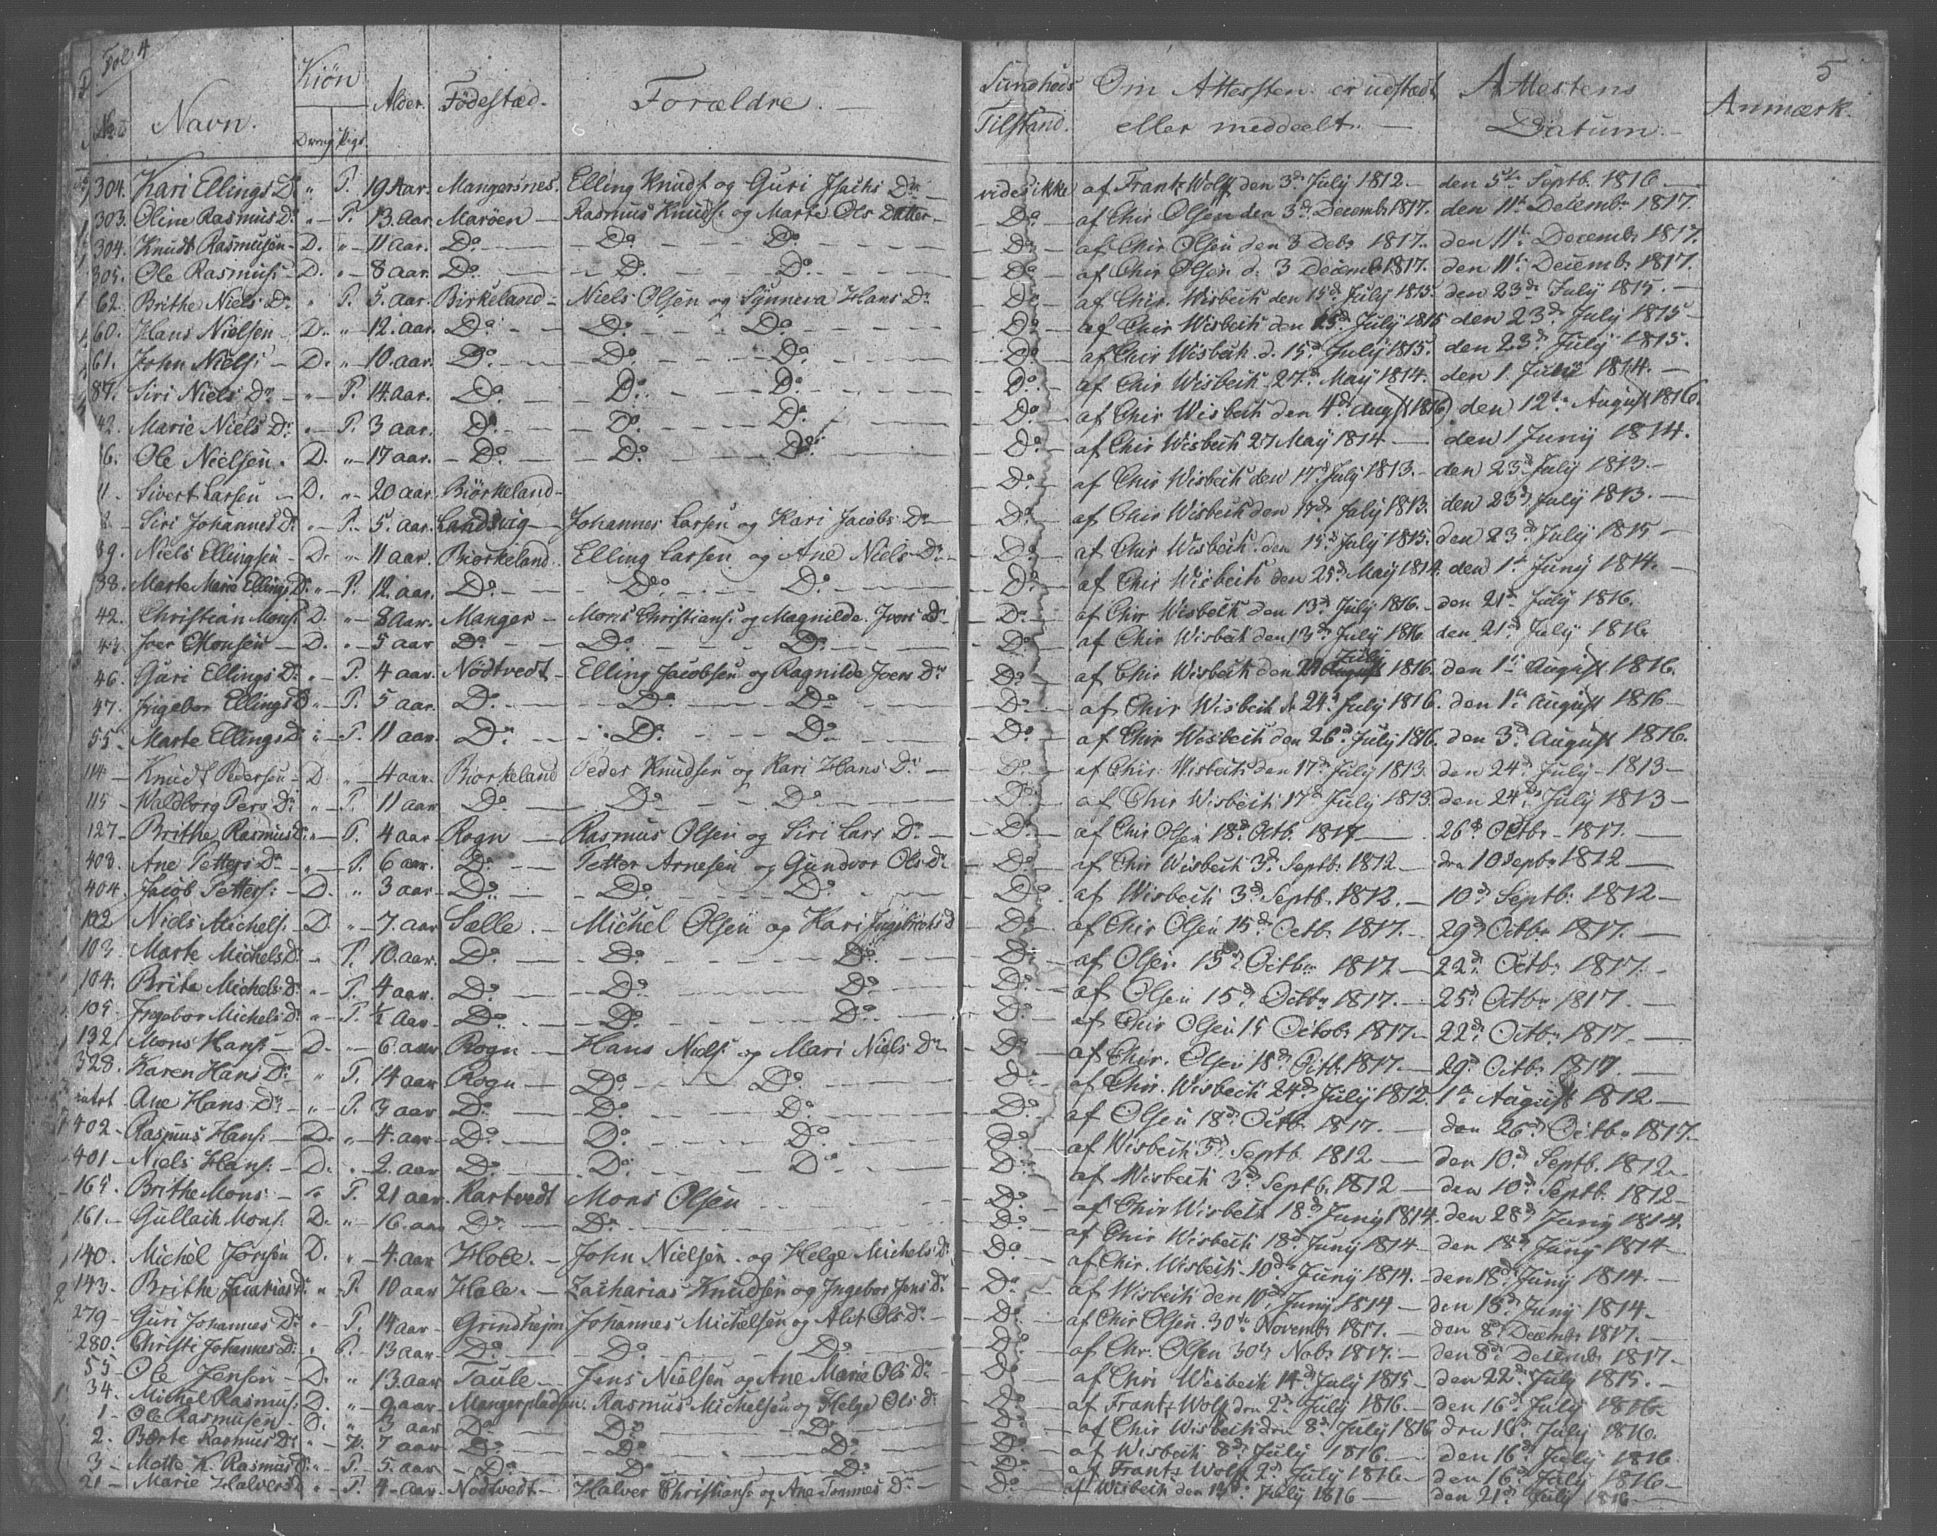 Fol 4
No Navn. Kiön Alder. Födestæd. Forældre. Sundheds Tilstand. Om Attesten er udstædt eller meddeelt. Attestens Datum. Anmærk. 5
Dreng Pige.
304. Kari Ellings Dr „ P. 19 Aar. Mangersnes. Elling Knudts og Guri Isachs Dr vides ikke af Frantz Wolff den 3d July 1812 den 5te Septb. 1816
303. Oline Rasmus Dr „ P. 13. aar Maröen Rasmus Knuds: og Marte Ols Datter Do af Chir Olsen den 3d Decembr 1817. den 11te Decembr 1817.
304. Knudt Rasmusen D. „ 11 aar. Do Do Do Do af Chir Olsen den 3 Debr 1817. den 11te Decembr 1817.
305. Ole Rasmus: D. „ 8 aar. Do Do Do Do af Chir Olsen d. 3 Decembr 1817. den 11te Decembr 1817.
62. Brithe Niels Dr „ P. 5. aar. Birkeland Niels Olsen og Synneva Hans Dr Do af Chir. Wisbech den 15d July 1815. den 23d July 1815.
60. Hans Nielsen D. „ 12. aar. Do Do Do Do af Chir Wisbech den 15d July 1815 den 23d July 1815
61. John Niels: D. „ 10. aar. Do Do Do Do af Chir Wisbech d. 15d July 1815. den 23d July 1815.
87. Siri Niels Dr „ P. 14. aar. Do Do Do Do af Chir Wisbech 27d May 1814. den 1. Junii 1814.
42. Marie Niels Dr „ P. 3 aar. Do Do Do Do af Chir Wisbech den 4d Augst 1816 den 12te August 1816.
6. Ole Nielsen. D. „ 17 aar. Do Do Do Do af Chir Wisbech 27 May 1814 den 1 Juny 1814.
11. Sivert Larsen D. „ 20 aar. Biörkeland Do af Chir Wisbech den 17d July 1813. den 23d July 1813.
Siri Johannes Dr „ P. 5. aar. Landsvig Johannes Larsen og Kari Jacobs Dr Do af Chir Wisbech den 17d July 1813. den 23d July 1813.
39. Niels Ellingsen D. „ 11 aar. Biorkeland Elling Larsen og Ane Niels Dr Do af Chir Wisbech. den 15d July 1815. den 23d July 1815
38. Marte Marie Ellings Dr „ P. 12. aar. Do Do Do Do af Chir Wisbech den 25d May 1814. den 1te Juny 1814.
42. Christian Mons: D. „ 8 aar. Manger Mons Christians: og Magnilde. Ivers Dr Do af Chir Wisbech den 13d July 1816. den 21d July 1816.
43. Iver Monsen D. „ 5 aar Do Do Do Do af Chir Wisbech den 13d July 1816 den 21d July 1816.
46. Guri Ellings Dr „ P. 4 aar. Nödtvedt Elling Jacobsen og Ragnilde Ivers Dr Do af Chir Wisbech den 27 July 1816. den 1te August 1816.
47. Ingebor Ellings D „ P. 5 aar. Do Do Do Do af Chir Wisbech d. 24d July 1816. den 1te August 1816
55. Marte Ellings D „ P. 11 aar. Do Do Do Do af Chir Wisbech den 26d July 1816. den 3d August 1816.
114 Knudt Pedersen D. „ 4 aar. Biorkeland Peder Knudsen og Kari Hans Dr Do af Chir. Wisbech den 17d July 1813. den 24d July 1813
115 Waldborg Pers Dr „ P. 11 aar Do Do Do Do af Chir Wisbech 17d July 1813. den 24d July 1813
127. Brithe Rasmus D. „ P. 4 aar Rogn Rasmus Olsen og Siri Lars Dr Do af Chir Olsen 18d Octb. 1817 26d Octbr 1817.
403. Ane Petters Dr „ P. 6 aar. Do Petter Arnesen og Gundvor Ols Dr Do af Chir Wisbech 3d Septb. 1812 den 10 Septbr 1812
404. Jacob Petters: D. „ 3 aar Do Do Do Do af Wisbech 3d Septb. 1812. 10d Septbr 1812
102 Niels Michels: D. „ 7. aar Sælle. Michel Olsen og Kari Ingebricts D Do af Chir Olsen 15d Octb. 1817. 29d Octbr 1817.
103. Marte Michels Dr „ P. 10. aar. Do Do Do Do af Olsen 15d Octbr 1817 22d Octbr 1817.
104. Brite Michels Dr „ P. 4 aar. Do Do Do Do af Olsen 15d Octbr 1817. 25d Octbr 1817
105. Ingebor Michels Dr „ P. ½ Aar Do Do Do Do af Chir Olsen 15 Octobr 1817. 22d Octbr 1817.
132. Mons Hans: D. „ 6. aar Rogn Hans Niels: og Mari Niels Dr Do af Chir. Olsen 18d Octb. 1817. 29d Octbr 1817
328. Karen Hans Dr „ P. 14 aar Rogn Do Do Do af Chir. Wisbech 24d July 1812. 1te August 1812
Ane Hans Dr „ P. 3 aar Do Do Do Do af Olsen 18d Octbr 1817. den 26d Octbr 1817.
402. Rasmus Hans: D. „ 4. aar Do Do Do Do af Wisbech 3d Septb. 1812 den 10d Septb. 1812
401 Niels Hans: D. „ 2. aar Do Do Do Do af Wisbech 3d Septb. 1812 den 10d Septb. 1812
165. Brithe Mons „ P. 21 aar Rartvedt Mons Olsen Do af Chir Wisbech 18d Juny 1814. den 28d Juny 1814.
161. Gullaich Mons: D. „ 16. aar Do Do Do af Chir Wisbech 18d Juny 1814 den 18d Juny 1814
140. Michel Jonsen D. „ 4. aar Hole. John Nielsen og Helge Michels Dr Do af Chir. Wisbech 10d Juny 1814. den 18d Juny 1814.
143. Brithe Zacarias Dr „ P. 10 aar Hole. Zacharias Knudsen og Ingebor Jens Dr Do af Wisbech den 10d Juny 1814 den 18d Juny 1814.
279 Guri Johannes Dr „ P. 14 aar Grindheim Johannes Michelsen og Alet Ols Dr Do af Chir Olsen 30te Novembr 1817. den 8d Decembr 1817.
280. Christi Johannes Dr „ P. 13 aar Do Do Do Do af Chr. Olsen 30te Nobr 1817. den 8d Decembr 1817.
55 Ole Jensen D. „ 13. aar Taule Jens Nielsen og Ane Marie Ols Dr Do af Chir Wisbech 14d July 1815 den 22d July 1815.
34. Michel Rasmus: D. „ 9 aar Mangerpladsen. Rasmus Michelsen og Helge Ols Dr Do af Frantz Wolf den 2d July 1816. den 16d July 1816.
1 Ole Rasmusen D. „ 3 aar Do Do Do Do af Chir Wisbech den 8d July 1816 den 16d July 1816.
2. Bærte Rasmus Dr „ P. 7 aar Do Do Do Do af Wisbech 8d July 1816. den 16d July 1816
3 Mette K. Rasmus Dr „ P. 5. aar Do Do Do Do af Frantz Wolff 2d July 1816 den 16d July 1816
21 Marie Halvers D „ P. 4 aar. Nödtvedt Halver Christians: og Ane Tommes Dr Do af Wisbech den July 1816 den 21d July 1816